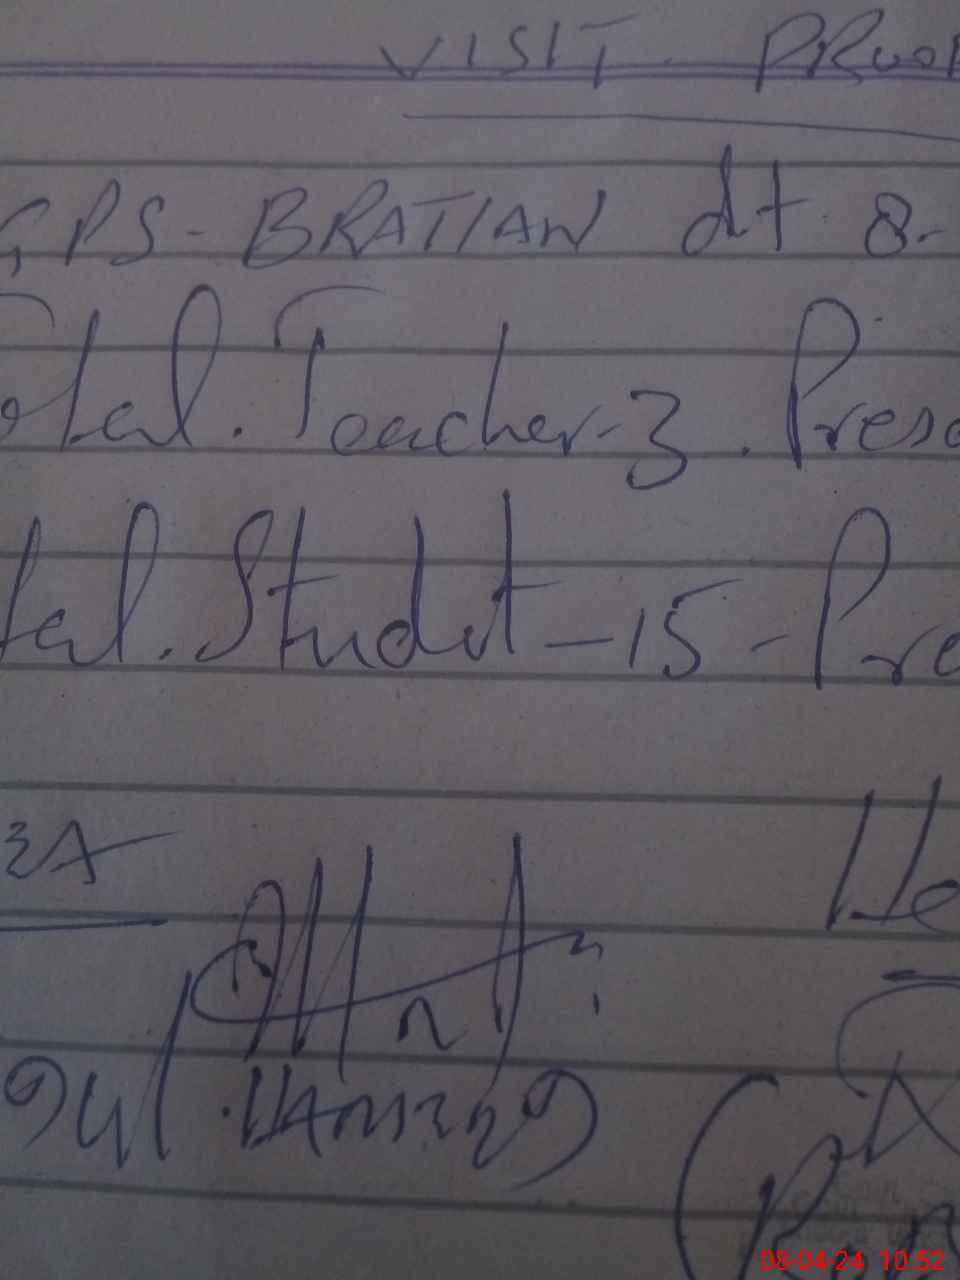 VISIT PROOF
GPS - BRATIAN dt 8-
otal. Teacher-3. Prese
tal. Studet - 15 - Pre
He
08-04-24 10:52